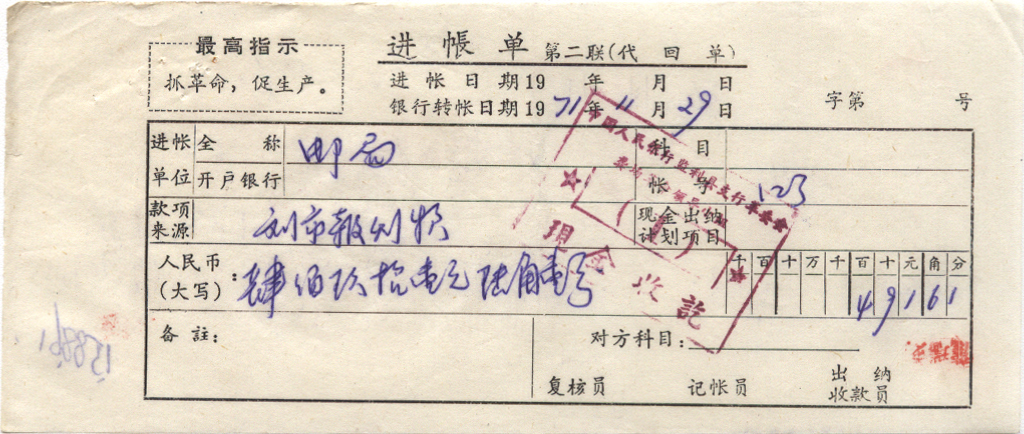 最高指示
抓革命，促生产。
进帐单 第二联(代回单)
进帐日期19 年 月 日
银行转帐日期1971年11月29日
字第 号
进帐单位 全称 邮局 科目
开户银行 帐号 123
款项来源 刘市报刊款 现金出纳计划项目
人民币(大写)：肆佰玖拾壹元陆角壹分
千百十万千百十元角分
49161
备註：
对方科目：
复核员 记帐员 出纳收款员
中国人民银行监利县支行革委会
现金收訖